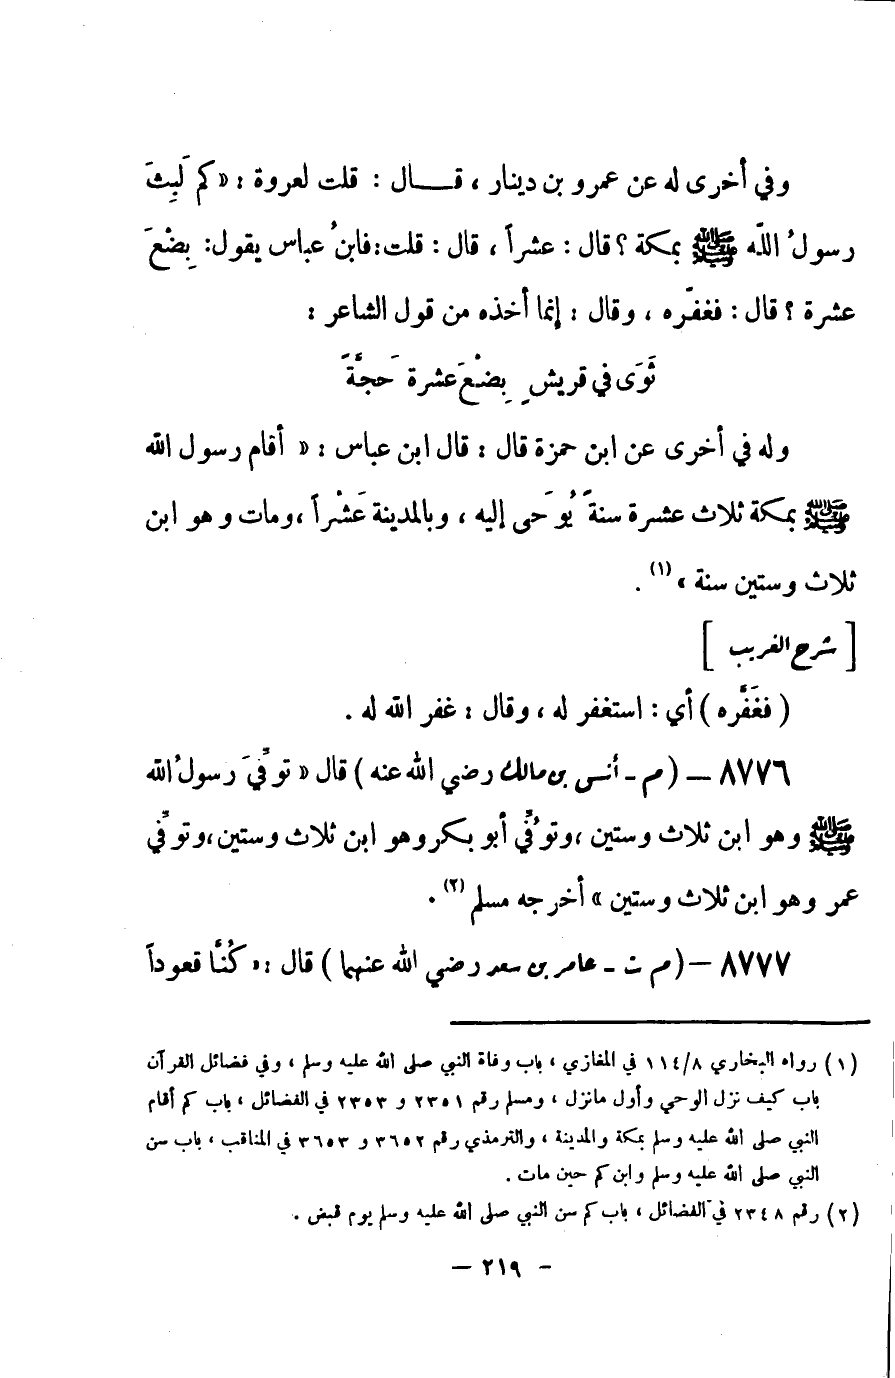 وفي أخرى له عن عمرو بن دينار ، قـــال : قلت لعروة : « كم لَبِثَ
رسولُ اللّه ﷺ بمكة ؟ قال : عشراً ، قال : قلت : فابنُ عباس يقول : بِضْعَ
عشرة ؟ قال : فغفّره ، وقال : إنما أخذه من قول الشاعر :
ثَوَى في قريشٍ بِضْعَ عشرة حَجَّةً
وله في أخرى عن ابن حمزة قال : قال ابن عباس : « أقام رسول الله
ﷺ بمكة ثلاث عشرة سنةً يُوحَى إليه ، وبالمدينة عَشْراً ، ومات وهو ابن
ثلاث وستين سنة » (١) .
[ شرح الغريب ]
( فغَفَّره ) أي : استغفر له ، وقال : غفر الله له .
٨٧٧٦ — ( م - أنس بن مالك رضي الله عنه ) قال « توفِّيَ رسولُ الله
ﷺ وهو ابن ثلاث وستين ، وتوُفِّي أبو بكر وهو ابن ثلاث وستين ، وتوفِّي
عمر وهو ابن ثلاث وستين » أخرجه مسلم (٢) .
٨٧٧٧ — ( م ت - عامر بن سعد رضي الله عنهما ) قال : « كُنَّا قعوداً
(١) رواه البخاري ١١٤/٨ في المغازي ، باب وفاة النبي صلى الله عليه وسلم ، وفي فضائل القرآن
باب كيف نزل الوحي وأول مانزل ، ومسلم رقم ٢٣٥١ و ٢٣٥٣ في الفضائل ، باب كم أقام
النبي صلى الله عليه وسلم بمكة والمدينة ، والترمذي رقم ٣٦٥٢ و ٣٦٥٣ في المناقب ، باب سن
النبي صلى الله عليه وسلم وابن كم حين مات .
(٢) رقم ٢٣٤٨ في الفضائل ، باب كم سن النبي صلى الله عليه وسلم يوم قبض .
- ٢١٩ —